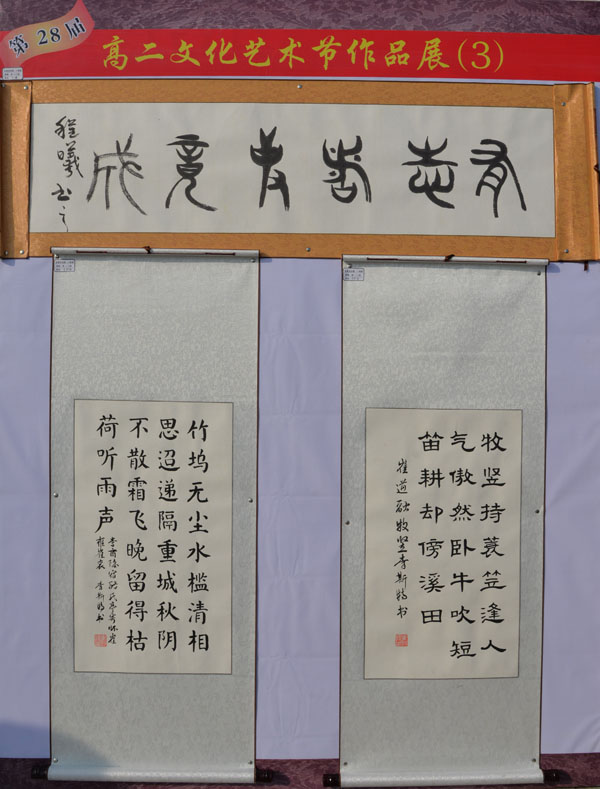 第28届
高二文化艺术节作品展(3)
有志者事竟成
程曦书之
竹坞无尘水槛清相
思迢递隔重城秋阴
不散霜飞晚留得枯
荷听雨声
李商隐宿骆氏亭寄怀崔
雍崔衮 李斯书
牧竖持蓑笠逢人
气傲然卧牛吹短
笛耕却傍溪田
崔道融牧竖李斯书